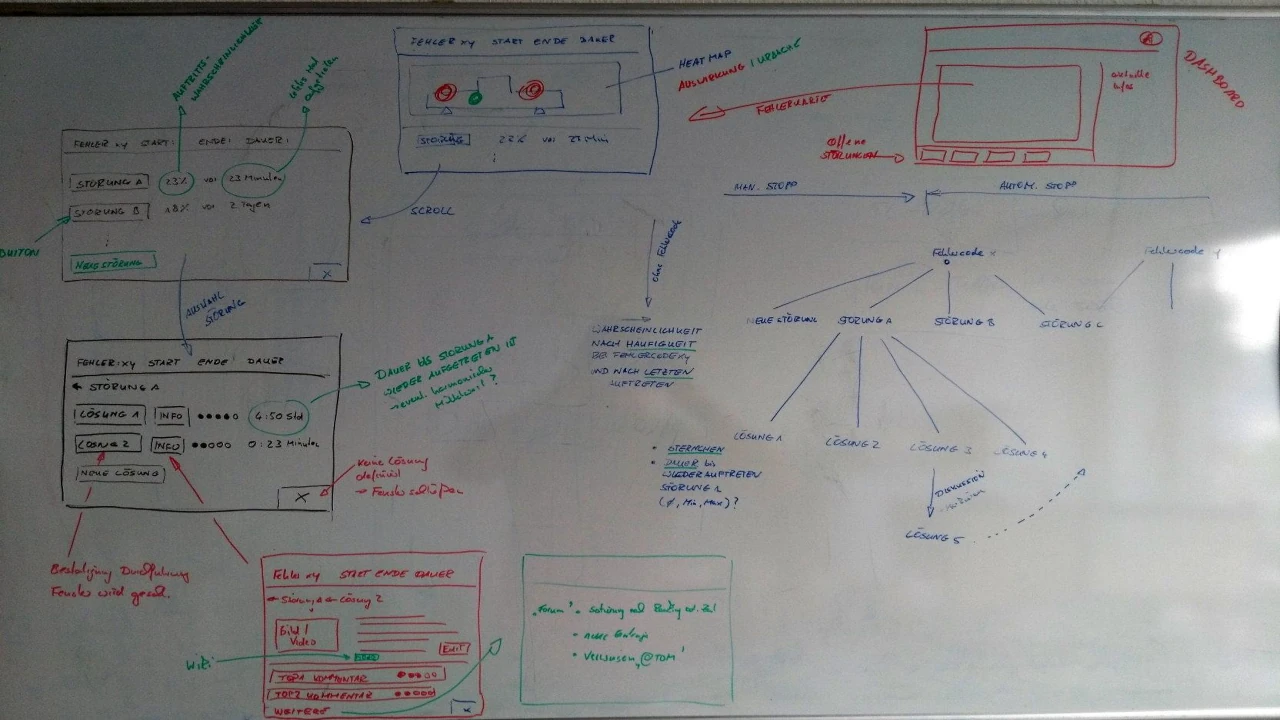 AUFTRITTS-
WAHRSCHEINLICHKEIT
FEHLER: XY START: ENDE: DAUER:
STÖRUNG A 23% vor 23 Minuten
STÖRUNG B 18% vor 2 Tagen
BUTTON
NEUE STÖRUNG
X
AUSWAHL
STÖRUNG
FEHLER XY START ENDE DAUER
STÖRUNG 22% vor 23 Min
SCROLL
HEATMAP
AUSWIRKUNG / URSACHE
FEHLERKARTE
DASHBOARD
aktuelle
Infos
Offene
STÖRUNGEN
MAN. STOPP
AUTOM. STOPP
ohne Fehlercode
Fehlercode X
Fehlercode Y
NEUE STÖRUNG
STÖRUNG A
STÖRUNG B
STÖRUNG C
WAHRSCHEINLICHKEIT
NACH HÄUFIGKEIT
BEI FEHLERCODE XY
UND NACH LETZTEN
AUFTRETEN
LÖSUNG 1
LÖSUNG 2
LÖSUNG 3
LÖSUNG 4
• STERNCHEN
• DAUER bis
WIEDERAUFTRETEN
STÖRUNG A
(Ø, Min, Max)?
DISKUSSION
LÖSUNG 5
FEHLER: XY START ENDE: DAUER
← STÖRUNG A
LÖSUNG 1 INFO 4:50 Std
LÖSUNG 2 INFO 0:23 Minuten
NEUE LÖSUNG
X
DAUER BIS STÖRUNG A
WIEDER AUFGETRETEN IST
→ event. harmonischer
Mittelwert?
Keine Lösung
definiert
→ Fenster schließen
Bestätigung Durchführung
Fenster wird gesch.
Fehler xy START ENDE DAUER
← Störung A ← Lösung 2
Bild /
Video
EDIT
Wiki
TOP1 KOMMENTAR
TOP2 KOMMENTAR
WEITERE
X
"Forum"
• verweisen "@TOM"